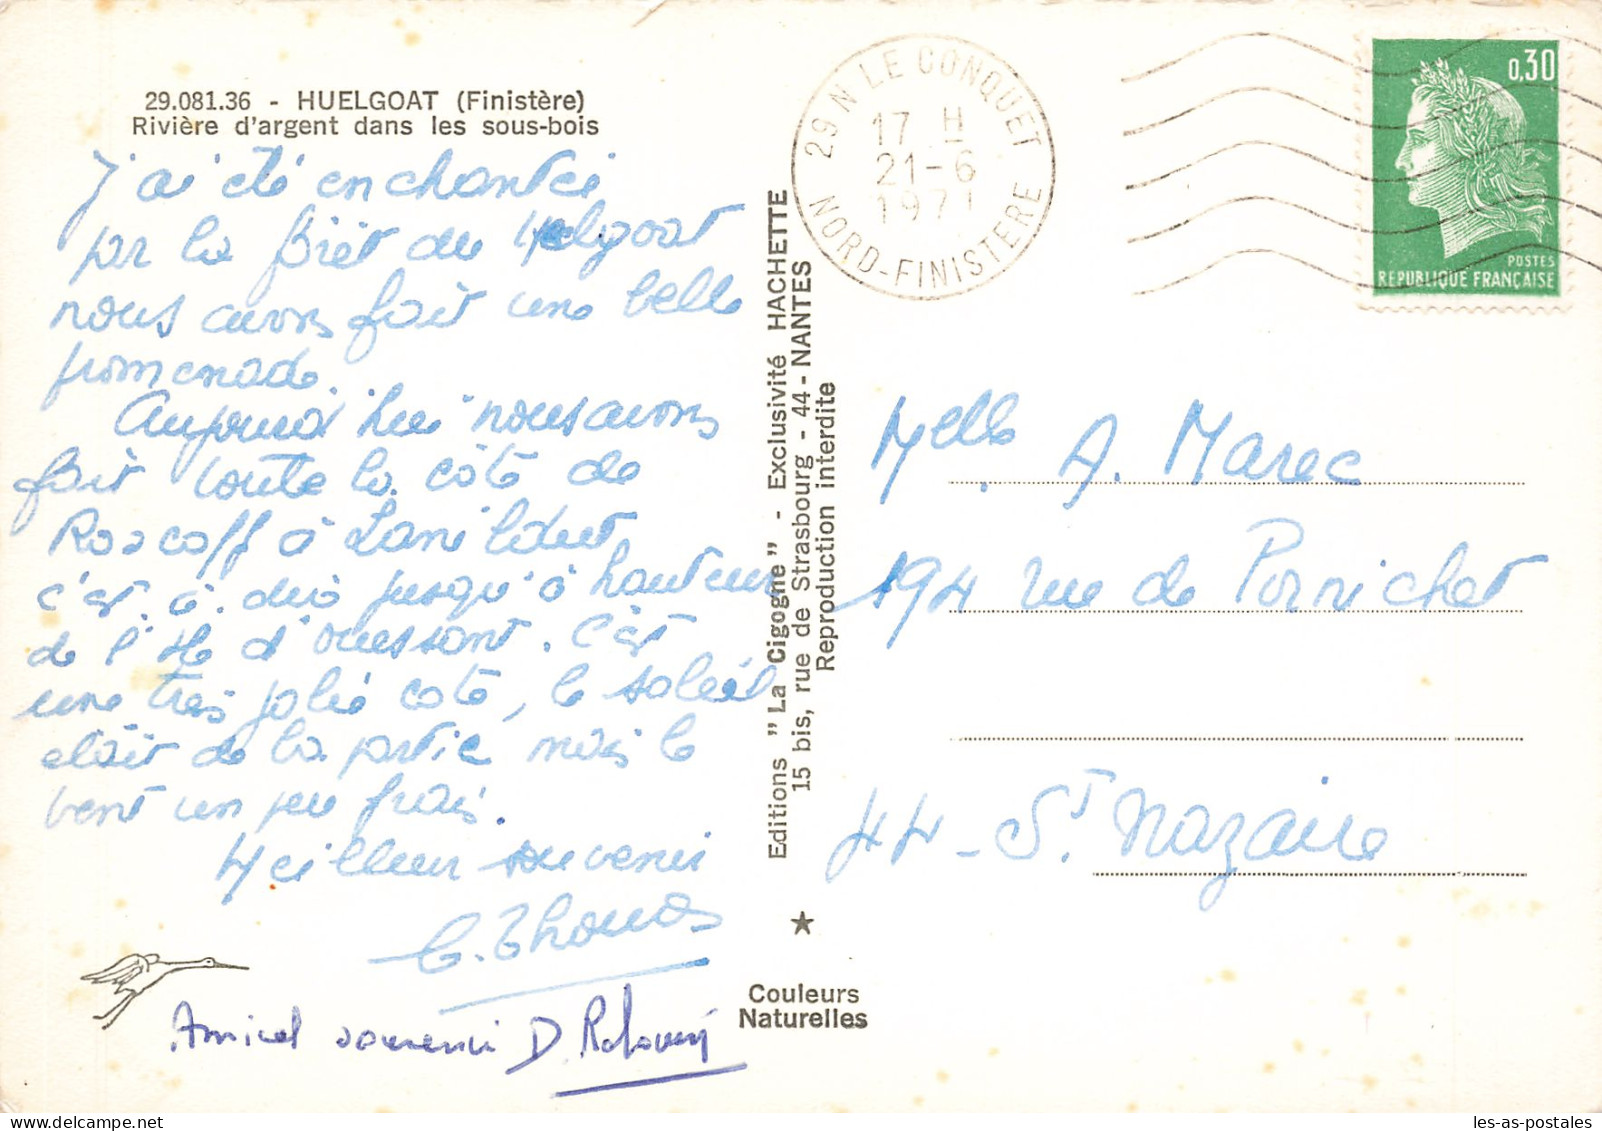 29.081.36 - HUELGOAT (Finistère)
Rivière d'argent dans les sous-bois
J'ai été enchantée
par la forêt du Huelgoat
nous avons fait une belle
promenade.
Aujourd'hui nous avons
fait toute la côte de
Roscoff à Lanildut
c'est. à. dire jusqu'à hauteur
de l'Ile d'ouessant. C'est
une très jolie cote, le soleil
était de la partie mais le
vent un peu frais.
Meilleur souvenir
Amical souvenir D.
Editions "La Cigogne" - Exclusivité HACHETTE
15 bis, rue de Strasbourg - 44 - NANTES
Reproduction interdite
Couleurs
Naturelles
29 N LE CONQUET
17 H
21-6
1971
NORD-FINISTERE
0,30
POSTES
REPUBLIQUE FRANÇAISE
Melle. A. Marec
194 rue de Pornichet
44 - St. Nazaire
les-as-postales